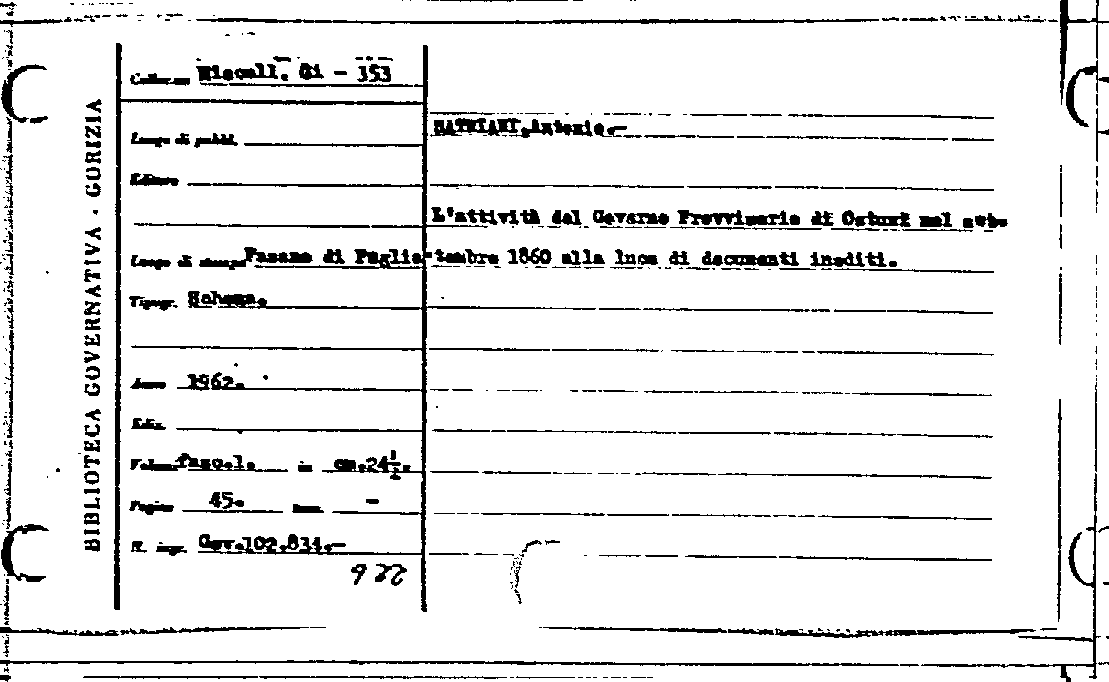 BIBLIOTECA GOVERNATIVA · GORIZIA
Collocaz. Miscell. Gi - 353
Luogo di pubbl.
Antonio.-
Editore
L'attività del Governo Provvisorio di Ostuni nel set-
Luogo di stampa Fasano di Puglia -tembre 1860 alla luce di documenti inediti.
Tipogr. Schena.
Anno 1962.
Ediz.
Volumi fasc.1. in cm.24½.
Pagine 45. -
N. ingr. Gov.102.834.-
922